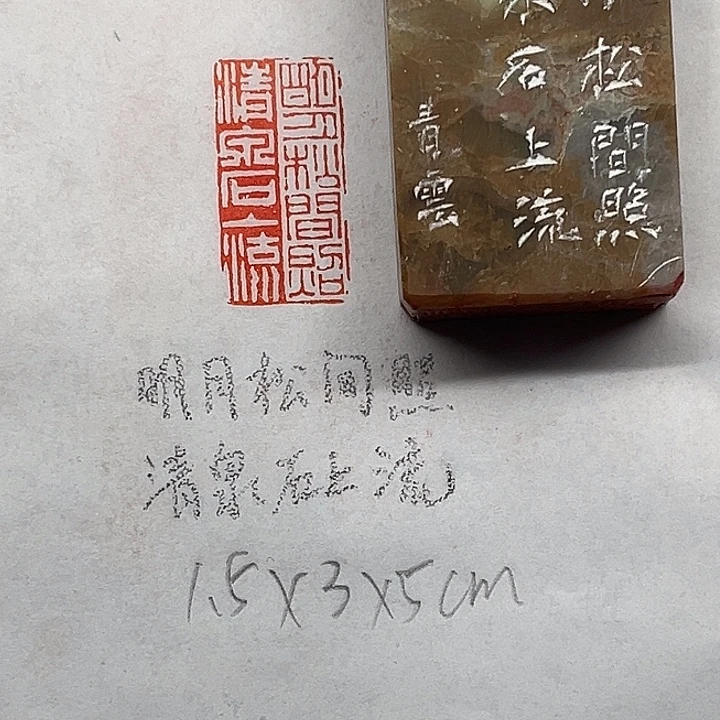 明月松間照
清泉石上流
松間照
泉石上流
青雲
明月松间照
清泉石上流
1.5X3X5cm